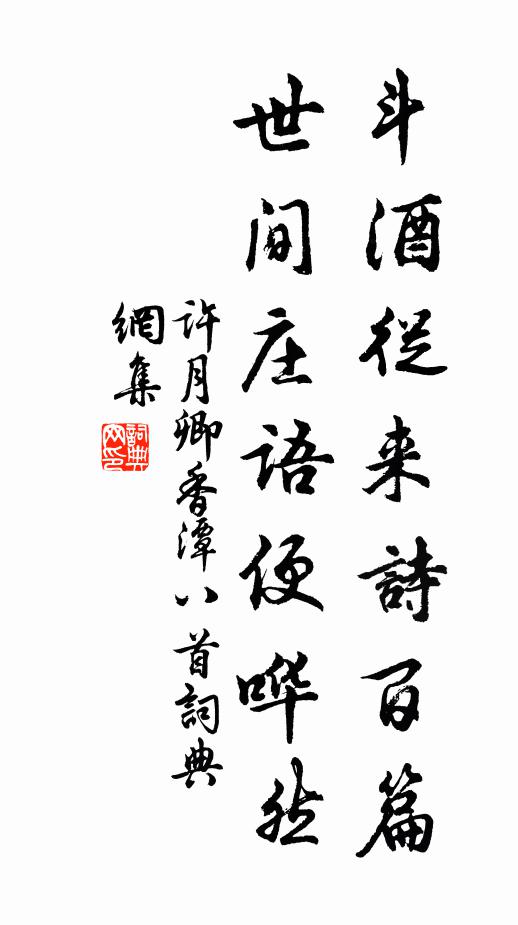 斗酒從来詩百篇
世间庄語便哗然
許月卿香潭八首詞典
網集
詞典
网印